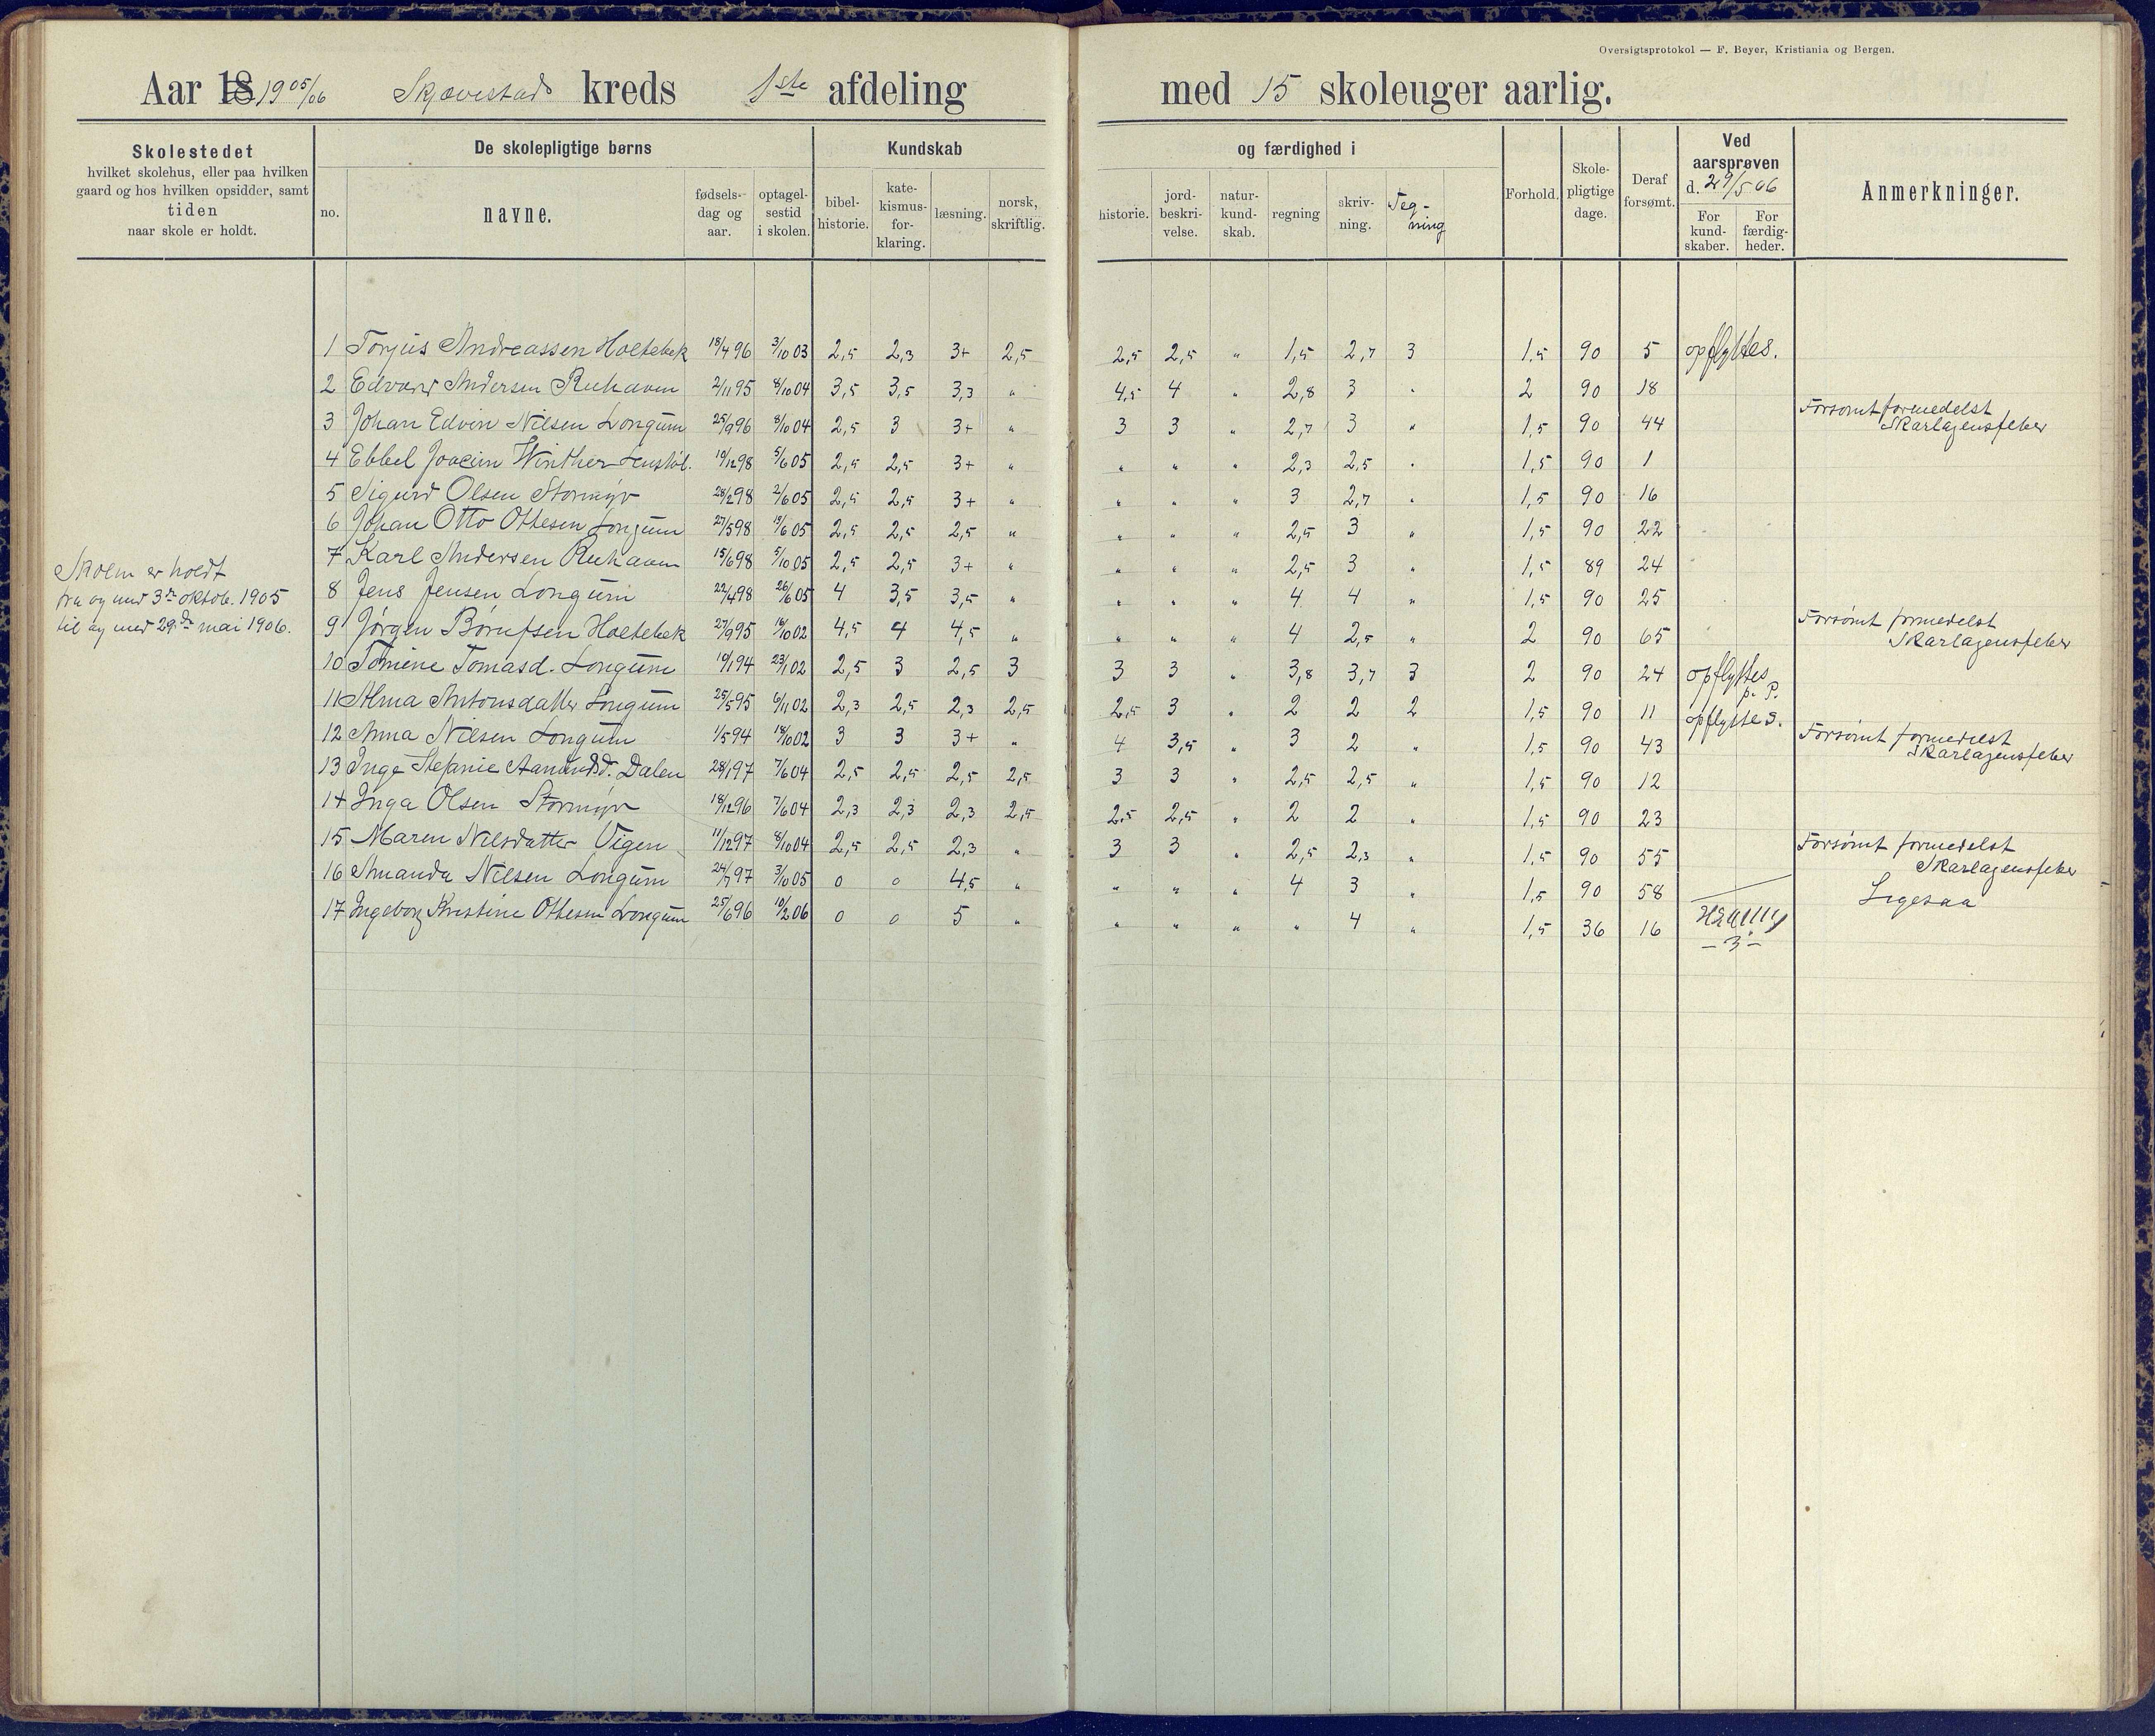 Oversigtsprotokol — F. Beyer, Kristiania og Bergen.
Aar 18 1905/06 Skjævestad kreds 1ste afdeling med 15 skoleuger aarlig.
Skolestedet
hvilket skolehus, eller paa hvilken
gaard og hos hvilken opsidder, samt
tiden
naar skole er holdt.
De skolepligtige børns
no.
navne.
fødsels-
dag og
aar.
optagel-
sestid
i skolen.
Kundskab
bibel-
historie.
kate-
kismus-
for-
klaring.
læsning.
norsk,
skriftlig.
og færdighed i
historie.
jord-
beskri-
velse.
natur-
kund-
skab.
regning
skriv-
ning.
Teg-
ning
Forhold.
Skole-
pligtige
dage.
Deraf
forsømt.
Ved
aarsprøven
d. 29/5 06
For
kund-
skaber.
For
færdig-
heder.
Anmerkninger.
Skolen er holdt
fra og med 3die oktob. 1905
til og med 29de mai 1906.
1 Torjus Andreassen Holtebek 18/4 96 3/10 03 2,5 2,3 3+ 2,5 2,5 2,5 " 1,5 2,7 3 1,5 90 5 opflyttes.
2 Edvard Andersen 2/11 95 8/10 04 3,5 3,5 3,3 " 4,5 4 " 2,8 3 " 2 90 18
3 Johan Edvin Nilsen Longum 25/9 96 8/10 04 2,5 3 3+ " 3 3 " 2,7 3 " 1,5 90 44 Forsømt formedelst
Skarlagensfeber
4 Ebbel Joacim Winther 10/12 98 5/6 05 2,5 2,5 3+ " " " " 2,3 2,5 " 1,5 90 1
5 Sigurd Olsen Stormyr 28/2 98 2/6 05 2,5 2,5 3+ " " " " 3 2,7 " 1,5 90 16
6 Johan Otto Ottesen Longum 27/5 98 19/6 05 2,5 2,5 2,5 " " " " 2,5 3 " 1,5 90 22
7 Karl Andersen 15/6 98 5/10 05 2,5 2,5 3+ " " " " 2,5 3 " 1,5 89 24
8 Jens Jensen Longum 22/4 98 26/6 05 4 3,5 3,5 " " " " 4 4 " 1,5 90 25
9 Jørgen Børufsen Holtebek 27/9 95 16/10 02 4,5 4 4,5 " " " " 4 2,5 " 2 90 65 Forsømt formedelst
Skarlagensfeber
10 Tomine Tomasd. Longum 10/1 94 23/1 02 2,5 3 2,5 3 3 3 " 3,8 3,7 3 2 90 24 opflyttes
p. P.
11 Alma Antonsdatter Longum 25/5 95 6/11 02 2,3 2,5 2,3 2,5 2,5 3 " 2 2 2 1,5 90 11 opflyttes.
12 Anna Nilsen Longum 1/5 94 18/10 02 3 3 3+ " 4 3,5 " 3 2 " 1,5 90 43 Forsømt formedelst
Skarlagensfeber
13 Inge Stefanie Aanundsd. Dalen 28/1 97 7/6 04 2,5 2,5 2,5 2,5 3 3 " 2,5 2,5 " 1,5 90 12
14 Inga Olsen Stormyr 18/12 96 7/6 04 2,3 2,3 2,3 2,5 2,5 2,5 " 2 2 " 1,5 90 23
15 Maren Nilsdatter Vigen 11/12 97 8/10 04 2,5 2,5 2,3 " 3 3 " 2,5 2,3 " 1,5 90 55 Forsømt formedelst
Skarlagensfeber
16 Amanda Nilsen Longum 24/7 97 3/10 05 0 0 4,5 " " " " 4 3 " 1,5 90 58 Ligesaa
17 Ingeborg Kristine Ottesen Longum 25/6 96 10/2 06 0 0 5 " " " " " 4 " 1,5 36 16
– 3 –